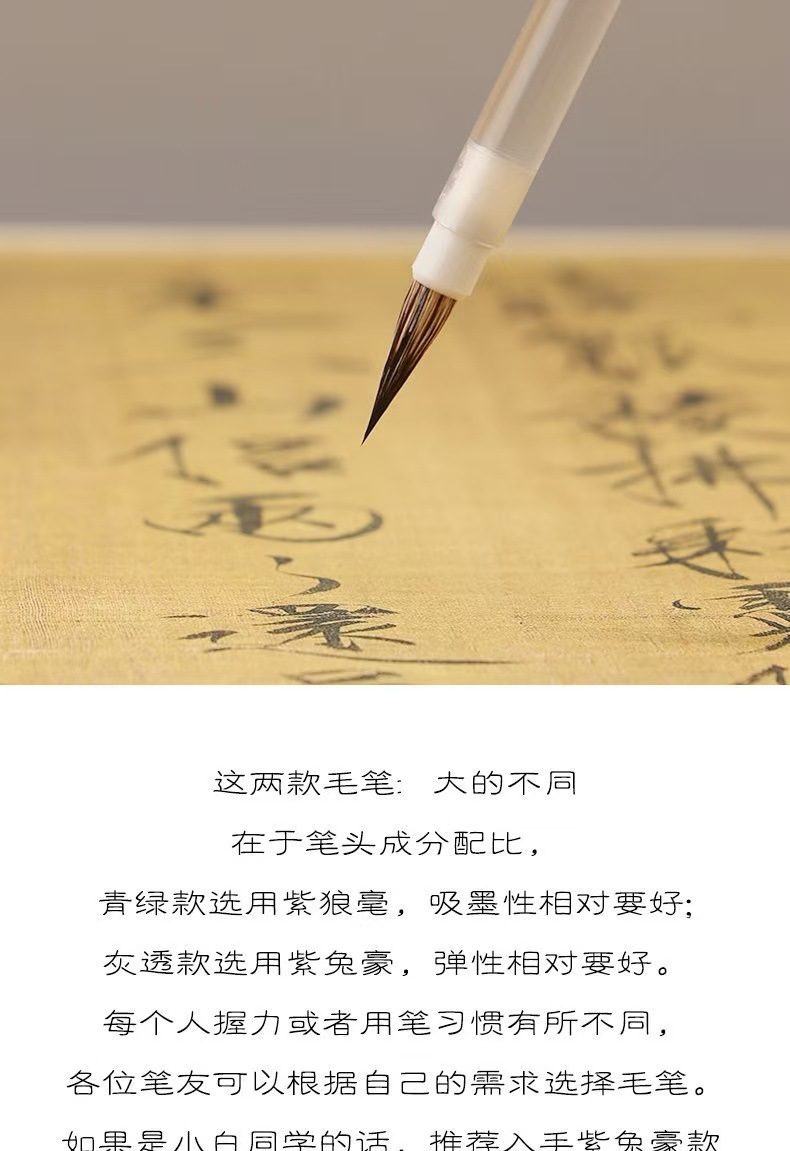 这两款毛笔: 大的不同
在于笔头成分配比，
青绿款选用紫狼毫，吸墨性相对要好;
灰透款选用紫兔豪，弹性相对要好。
每个人握力或者用笔习惯有所不同，
各位笔友可以根据自己的需求选择毛笔。
如果是小白同学的话，推荐入手紫兔豪款